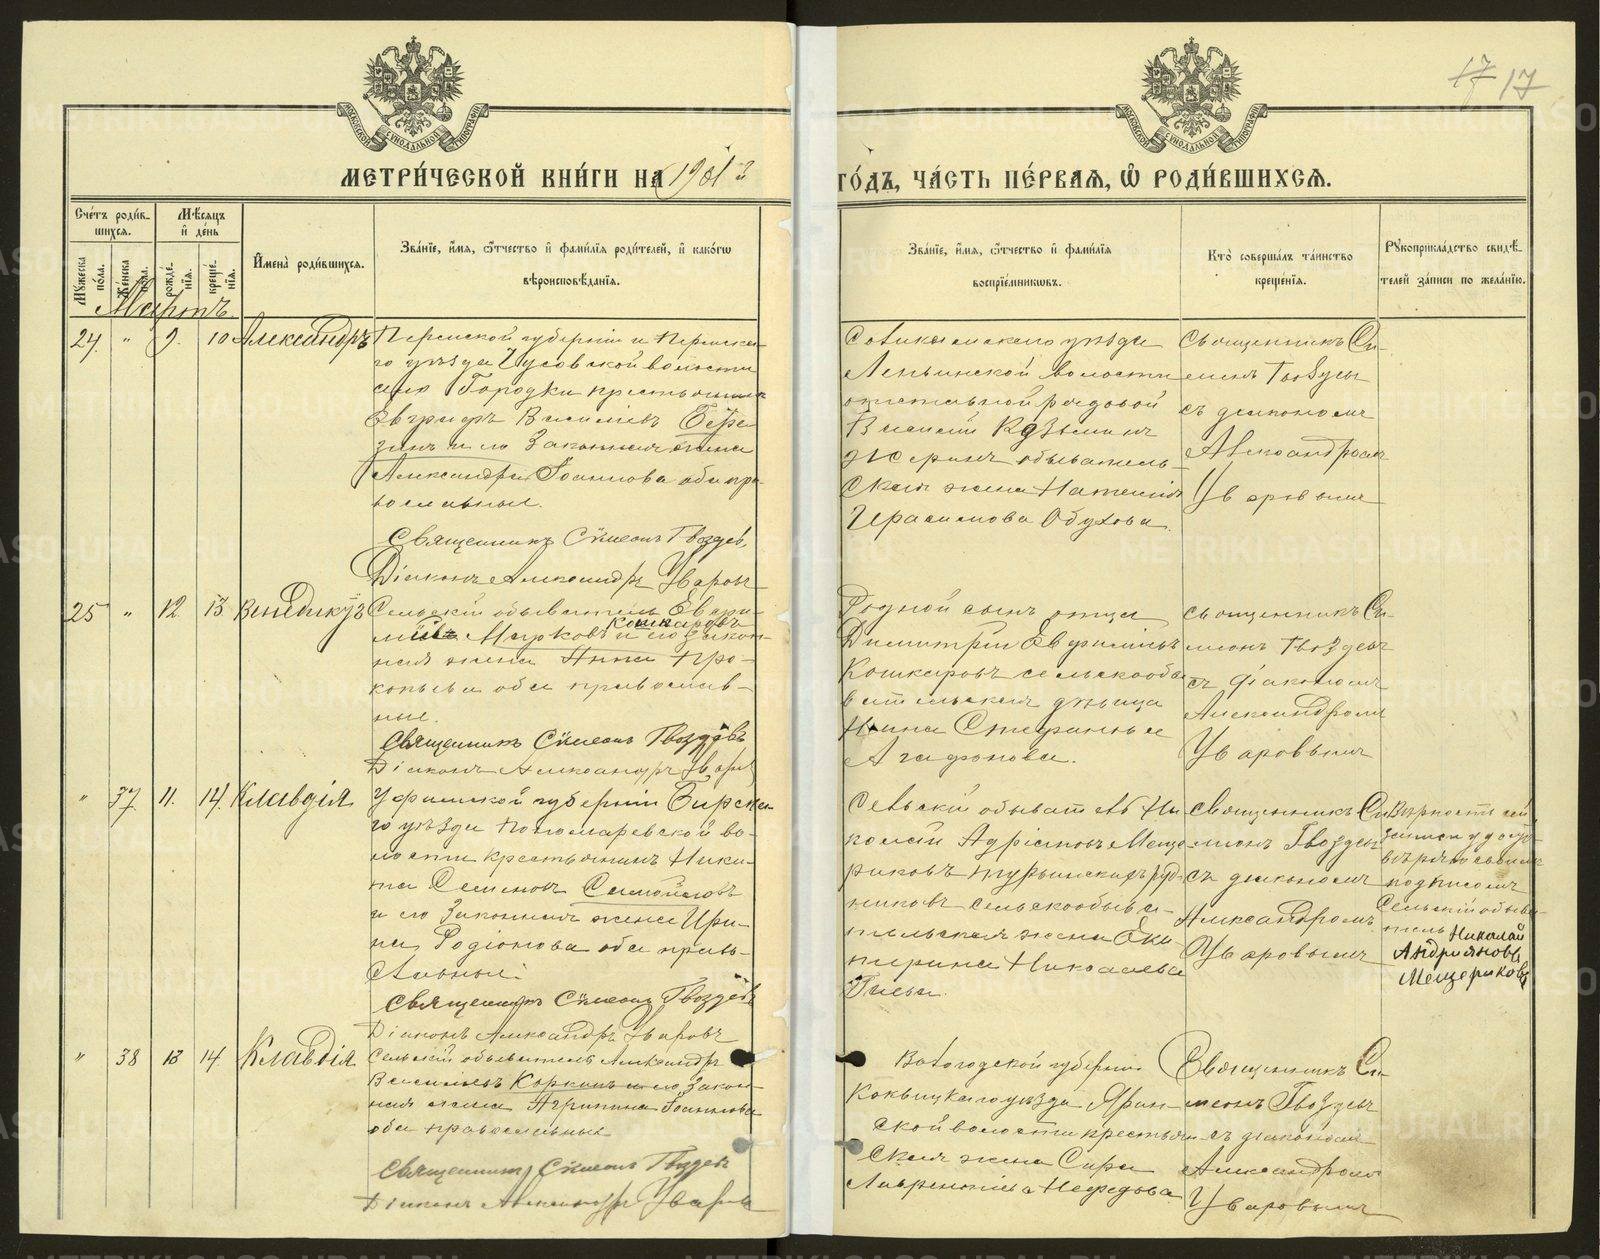 17 17
МЕТРИ́ЧЕСКОЙ КНИ́ГИ НА 1901 й
ГО́ДЪ, ЧА́СТЬ ПЕ́РВАЯ, Ѡ РОДИ́ВШИХСЯ.
Счетъ роди́в-
шихся.
Мѣсяцъ
и́ де́нь
Му́жеска по́ла.
Же́нска по́ла.
рожде́нїя.
креще́нїя.
И̓мена̀ роди́вшихся.
Зва́нїе, и́мя, ѻ́тчество и́ фами́лїя роди́телей, и́ како́гѡ
вѣроисповѣ́данїя.
Зва́нїе, и́мя, ѻ́тчество и́ фами́лїя
воспрїе́мниковъ.
Кто̀ соверша́лъ та́инство
креще́нїя.
Рꙋкоприкла́дство свидѣ́-
телей за́писи по жела́нїю.
Мартъ
24. " 9. 10 Александръ
Пермской губерніи и Пермска-
го уѣзда Чусовской волости
село Городки крестьянинъ
Евграфъ Василіевъ Бере-
зинъ и его законная жена
Александра Іоаннова оба пра-
вославные.
Священникъ Сѵмеонъ Гвоздевъ
Діаконъ Александръ Уваровъ
Соликамскаго уѣзда
Леньвинской волости
отставной рядовой
Василій Козьминъ
обыватель-
ская жена Наталія
Герасимова Обухова.
Священникъ Си-
меонъ Гвоздевъ
съ діакономъ
Александромъ
Уваровымъ
25 " 12. 13 Венедиктъ
Сельскій обыватель Евфи-
мій Марковъ Кошкаровъ и его закон-
ная жена Анна Про-
копьева оба православ-
ные.
Священникъ Сѵмеонъ Гвоздевъ
Діаконъ Александръ Уваровъ
Родной сынъ отца
Димитрій Евфиміевъ
Кошкаровъ сельскообы-
вательская дѣвица
Анна Стефаньева
Агафонова.
Священникъ Си-
меонъ Гвоздевъ
съ діакономъ
Александромъ
Уваровымъ
" 37. 11. 14. Клавдія
Уфимской губерніи Бирска-
го уѣзда Пономаревской во-
лости крестьянинъ Ники-
та Семеновъ Самойловъ
и его законная жена Ири-
на Родіонова оба право-
славные.
Священникъ Сѵмеонъ Гвоздевъ
Діаконъ Александръ Уваровъ
Сельскій обыватель Ни-
колай Адріановъ Меще-
риковъ Турьинскихъ руд-
никовъ сельскообыва-
тельская жена Ека-
терина Николаева
Священникъ Си-
меонъ Гвоздевъ
съ діакономъ
Александромъ
Уваровымъ
Вѣрность сей
записи удосто-
вѣряю своимъ
подписомъ
Сельскій обыва-
тель Николай
Андрияновъ
Мещериковъ
" 38 13 14 Клавдія
Сельскій обыватель Александръ
Васильевъ Коркинъ и его закон-
ная жена Агрипина Іоаннова
оба православные
Священникъ Сѵмеонъ Гвоздевъ
Діаконъ Александръ Уваровъ
Вологодской губерніи
уѣзда Ярен-
ской волости крестьян-
ская жена Сира
Лаврентіева Нефедова
Священникъ Си-
меонъ Гвоздевъ
съ діакономъ
Александромъ
Уваровымъ